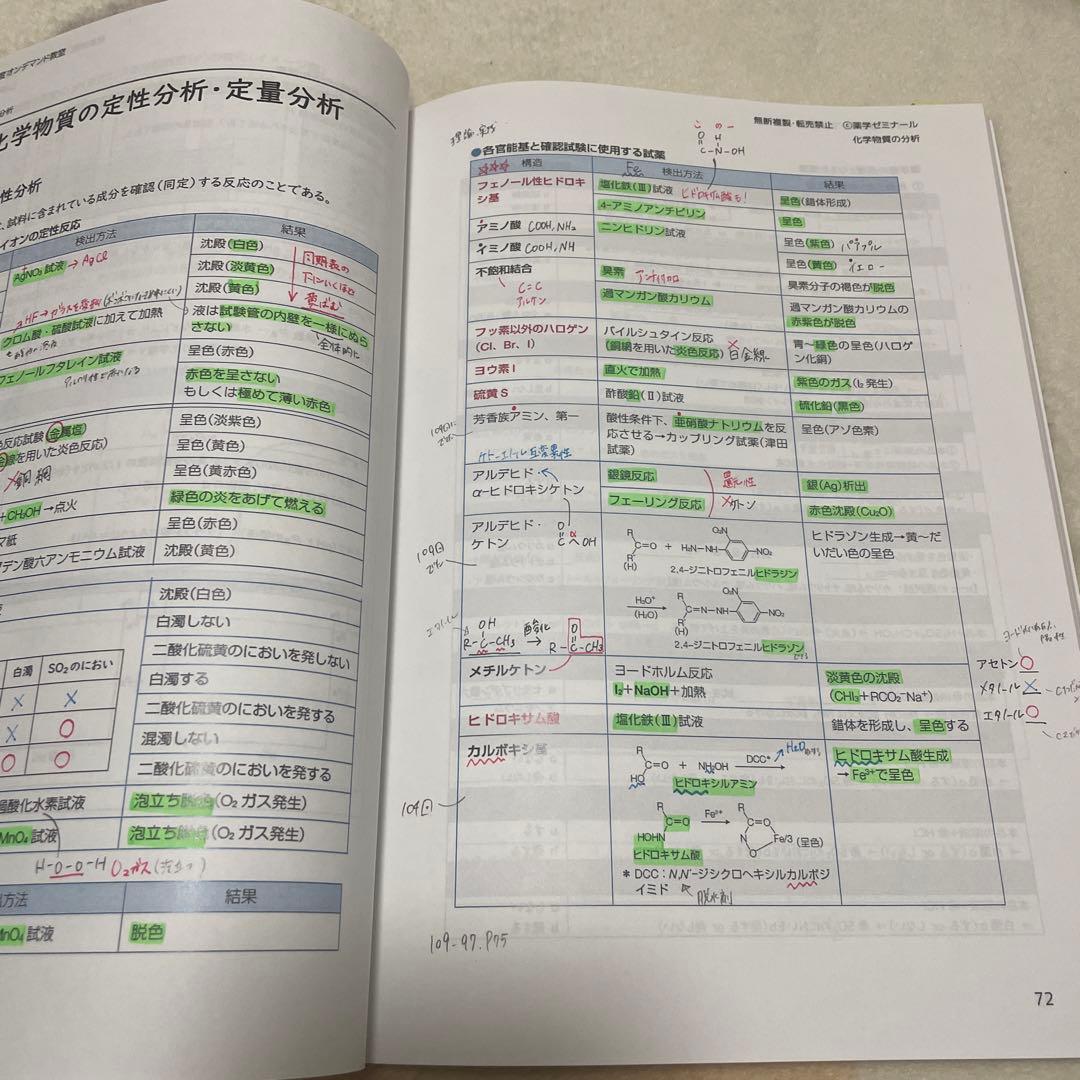 オンデマンド教室
化学物質の定性分析・定量分析
性分析
、試料に含まれている成分を確認(同定)する反応のことである。
イオンの定性反応
検出方法 結果
AgNO₃試液 → AgCl 沈殿(白色)
沈殿(淡黄色)
沈殿(黄色)
周期表の
下にいくほど
黄ばむ
クロム酸・硫酸試液に加えて加熱
液は試験管の内壁を一様にぬら
さない
全体的に
フェノールフタレイン試液 呈色(赤色)
赤色を呈さない
もしくは極めて薄い赤色
呈色(淡紫色)
色反応試験(金属塩
線を用いた炎色反応) 呈色(黄色)
×銅網
呈色(黄赤色)
+CH₃OH→点火 緑色の炎をあげて燃える
マ紙 呈色(赤色)
デン酸六アンモニウム試液 沈殿(黄色)
沈殿(白色)
白濁しない
白濁 SO₂のにおい
二酸化硫黄のにおいを発しない
× × 白濁する
二酸化硫黄のにおいを発する
× ○ 混濁しない
○ ○ 二酸化硫黄のにおいを発する
過酸化水素試液 泡立ち脱色(O₂ガス発生)
MnO₄試液 泡立ち脱色(O₂ガス発生)
H-O-O-H O₂ガス(泡立つ)
方法 結果
MnO₄試液 脱色
無断複製・転売禁止 ⓒ薬学ゼミナール
化学物質の分析
この一
O H
C-N-OH
●各官能基と確認試験に使用する試薬
☆☆☆ 構造 Fe 検出方法 結果
フェノール性ヒドロキ
シ基
塩化鉄(Ⅲ)試液 ヒドロキサム酸も! 呈色(錯体形成)
4-アミノアンチピリン 呈色
アミノ酸 COOH, NH₂ ニンヒドリン試液 呈色(紫色) パープル
イミノ酸 COOH, NH 呈色(黄色) イエロー
不飽和結合 臭素 アンチ付加 臭素分子の褐色が脱色
C=C
アルケン
過マンガン酸カリウム 過マンガン酸カリウムの
赤紫色が脱色
フッ素以外のハロゲン
(Cl、Br、I)
バイルシュタイン反応
(銅網を用いた炎色反応) ×白金線
青~緑色の呈色(ハロゲ
ン化銅)
ヨウ素 I 直火で加熱 紫色のガス(I₂発生)
硫黄 S 酢酸鉛(Ⅱ)試液 硫化鉛(黒色)
芳香族アミン、第一 酸性条件下、亜硝酸ナトリウムを反
応させる→カップリング試薬(津田
試薬)
呈色(アゾ色素)
ケト-エノール互変異性
アルデヒド 銀鏡反応 還元性 銀(Ag)析出
α-ヒドロキシケトン フェーリング反応 ×ケトン 赤色沈殿(Cu₂O)
アルデヒド・
ケトン
O
C OH
R
C=O + H₂N-NH- NO₂
(H) -NO₂
2,4-ジニトロフェニルヒドラジン
ヒドラゾン生成→黄~だ
いだい色の呈色
109回
H₃O⁺
(H₂O)
R
C=N-NH- NO₂
(H) -NO₂
2,4-ジニトロフェニルヒドラゾン
エタノール
OH
R-C-CH₃ 酸化 → R-C-CH₃
O
メチルケトン ヨードホルム反応 淡黄色の沈殿
I₂+NaOH+加熱 (CHI₃+RCO₂⁻Na⁺)
アセトン ○
メタノール ×
エタノール ○
ヒドロキサム酸 塩化鉄(Ⅲ)試液 錯体を形成し、呈色する
カルボキシ基
R
C=O + NH₂OH DCC* H₂O
HO ヒドロキシルアミン
ヒドロキサム酸生成
→Fe³⁺で呈色
104回
R
C=O Fe³⁺ R C=O
HOHN N O Fe/3 (呈色)
ヒドロキサム酸
* DCC:N,N'-ジシクロヘキシルカルボジ
イミド 脱水剤
109-97. P75
72